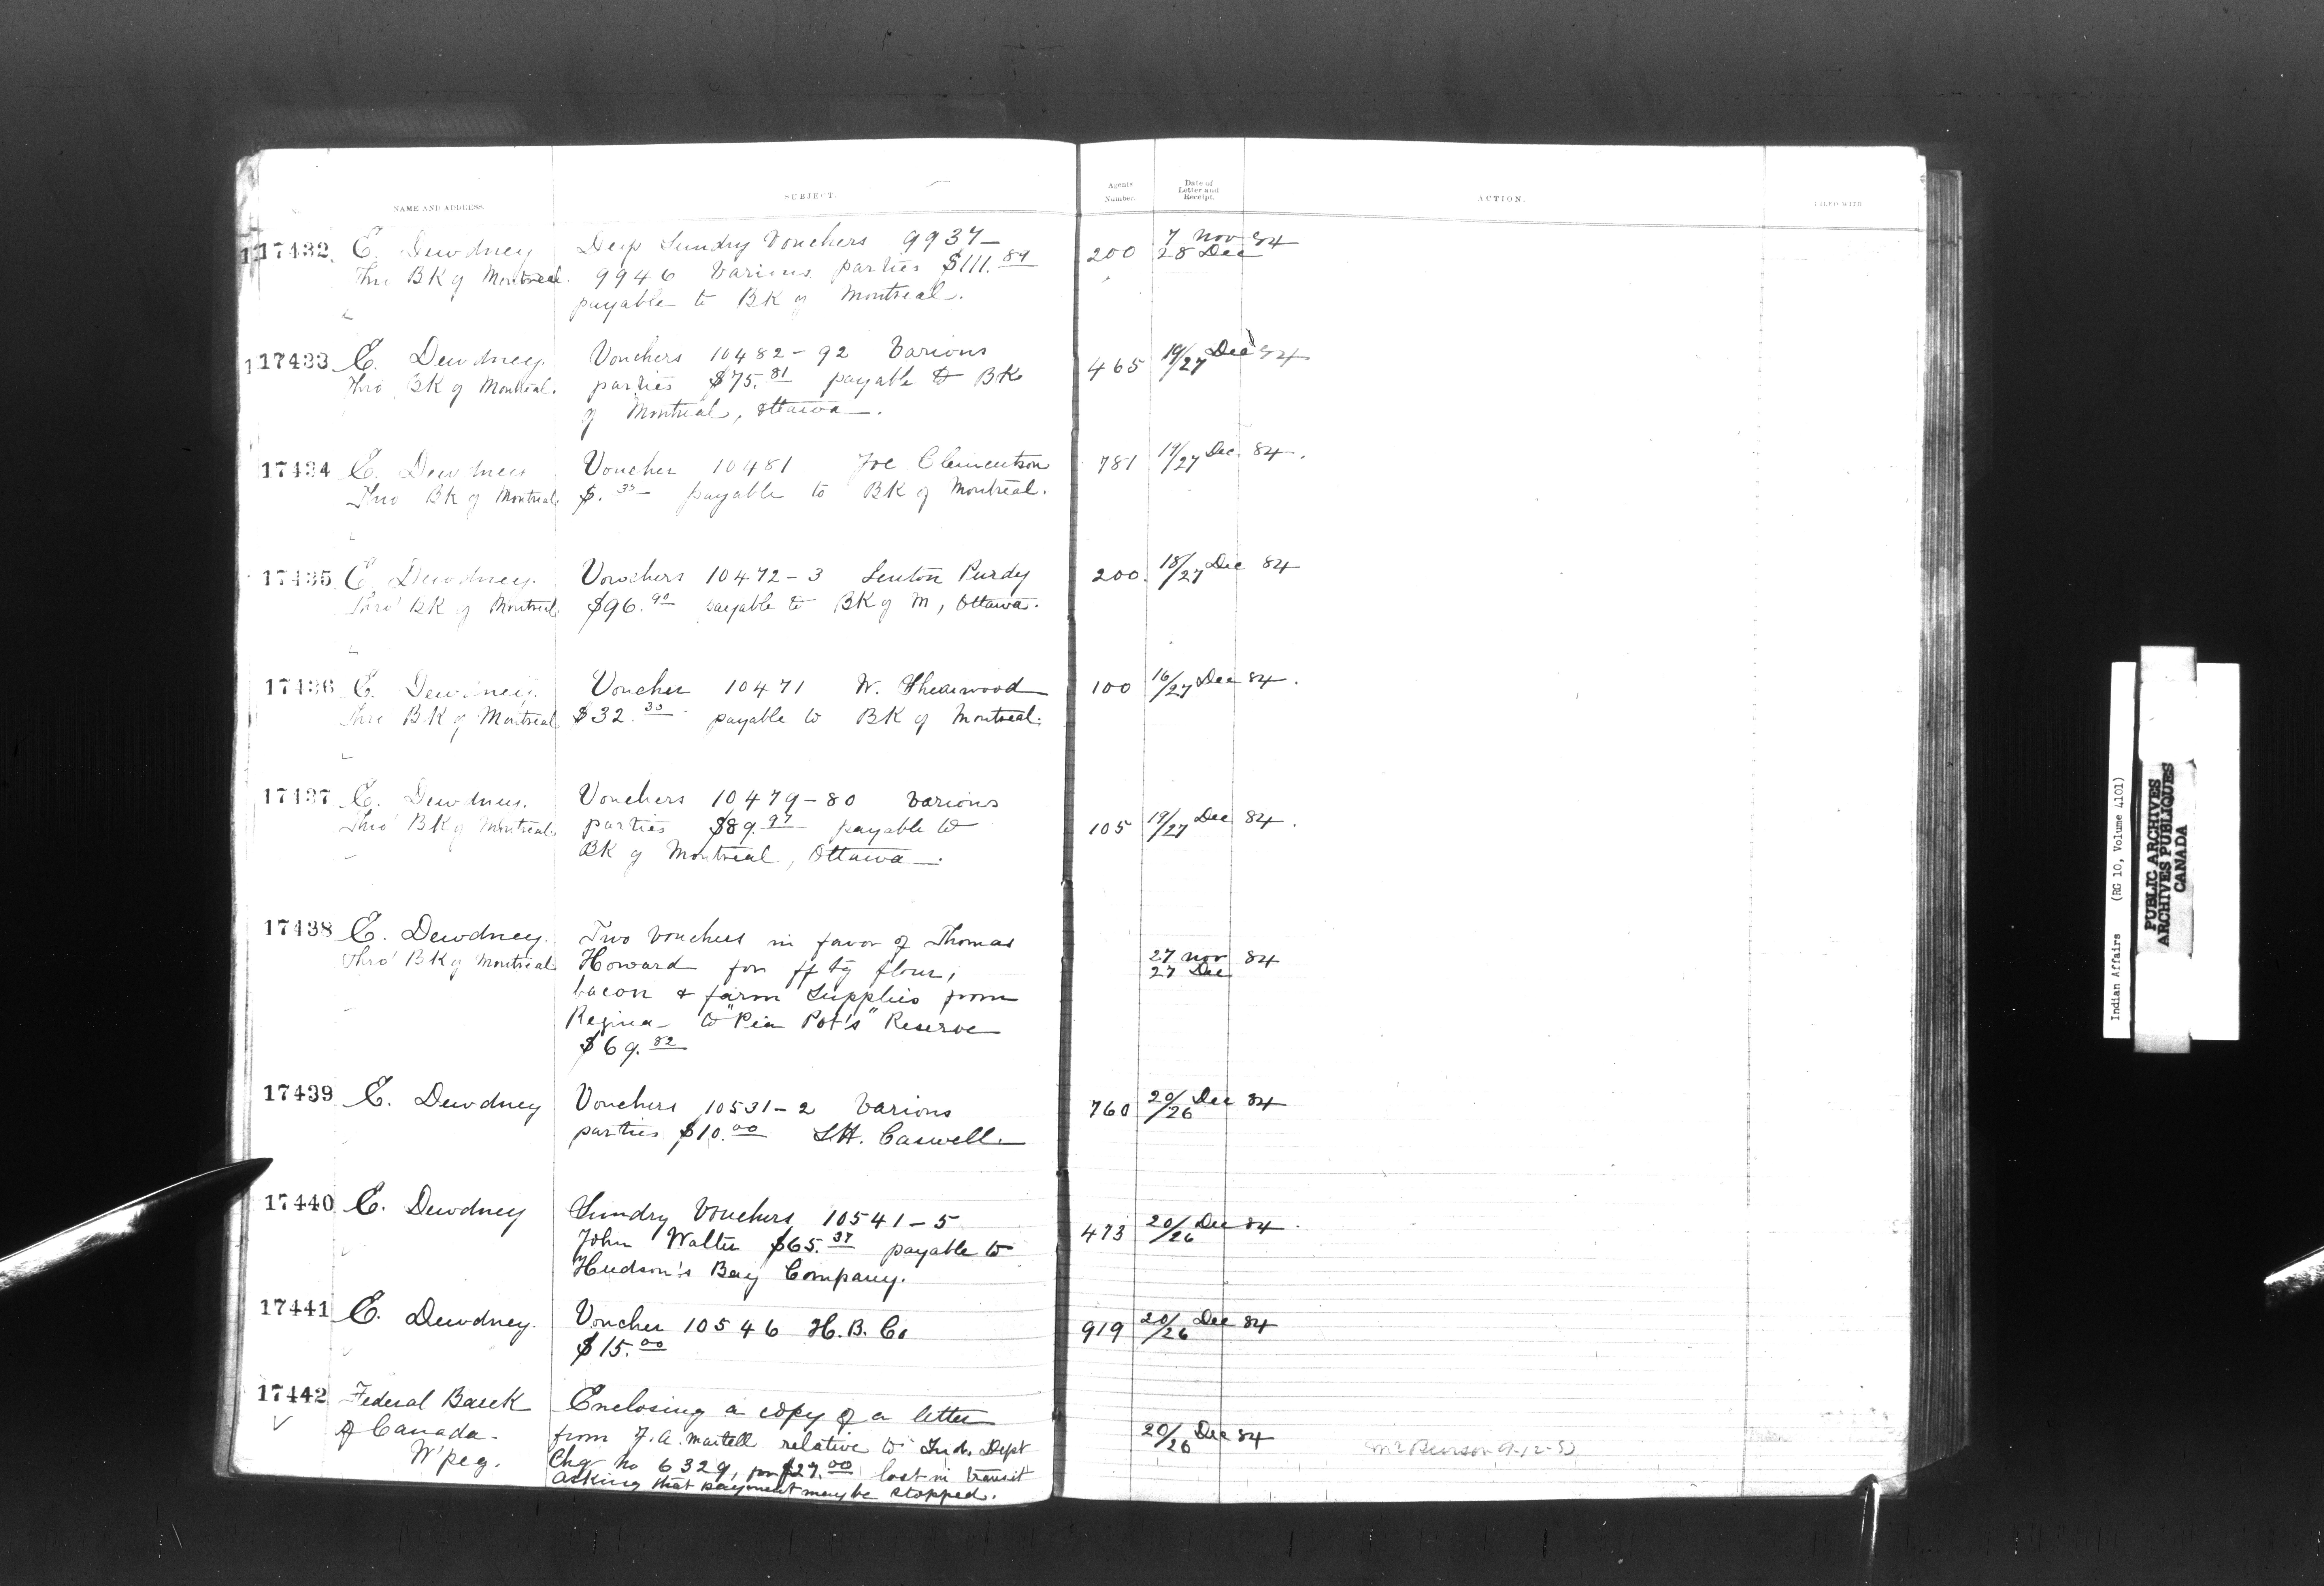 NAME AND ADDRESS. SUBJECT. Agents Number. Date of Letter and Receipt. ACTION.
17432 E. Dewdney Sundry Vouchers 9937- 200 7 Nov 84
Thro BK of Montreal. 9946 Various parties $111.84 28 Dec
payable to BK of Montreal.
17433 E. Dewdney. Vouchers 10482-92 Various 465 19/27 Dec 84
Thro BK of Montreal. parties $75.81 payable to BK
of Montreal, Ottawa.
17434 E. Dewdney Voucher 10481 Joe Clementson 781 19/27 Dec. 84.
Thro BK of Montreal. $. payable to BK of Montreal.
17435 E. Dewdney. Vouchers 10472-3 Purdy 200. 18/27 Dec 84
Thro' BK of Montreal. $96.90 payable to BK of M, Ottawa.
17436 E. Dewdney. Voucher 10471 W. Shearwood 100 16/27 Dec 84.
Thro BK of Montreal $32. payable to BK of Montreal.
17437 E. Dewdney. Vouchers 10479-80 Various 105 19/27 Dec 84.
Thro' BK of Montreal. parties $89.97 payable to
BK of Montreal, Ottawa.
17438 E. Dewdney. Two vouchers in favor of Thomas
Thro' BK of Montreal Howard for flour, 27 Nov 84
27 Dec
bacon & farm supplies from
Regina to "Pia Pot's" Reserve
$69.82
17439 E. Dewdney Vouchers 10531-2 Various 760 20/26 Dec 84
parties $10.00 Caswell
17440 E. Dewdney Sundry Vouchers 10541-5 473 20/26 Dec 84.
John Walter $65.37 payable to
Hudson's Bay Company.
17441 E. Dewdney. Voucher 10546 H.B. Co 919 20/26 Dec 84
$15.00
17442 Federal Bank Enclosing a copy of a letter
of Canada. from F.A. Martell relative to Ind. Dept 20/26 Dec 84
W'peg. Chq No 6329, for $27.00 lost in transit
asking that payment may be stopped.
Indian Affairs (RG 10, Volume 4101)
PUBLIC ARCHIVES
ARCHIVES PUBLIQUES
CANADA